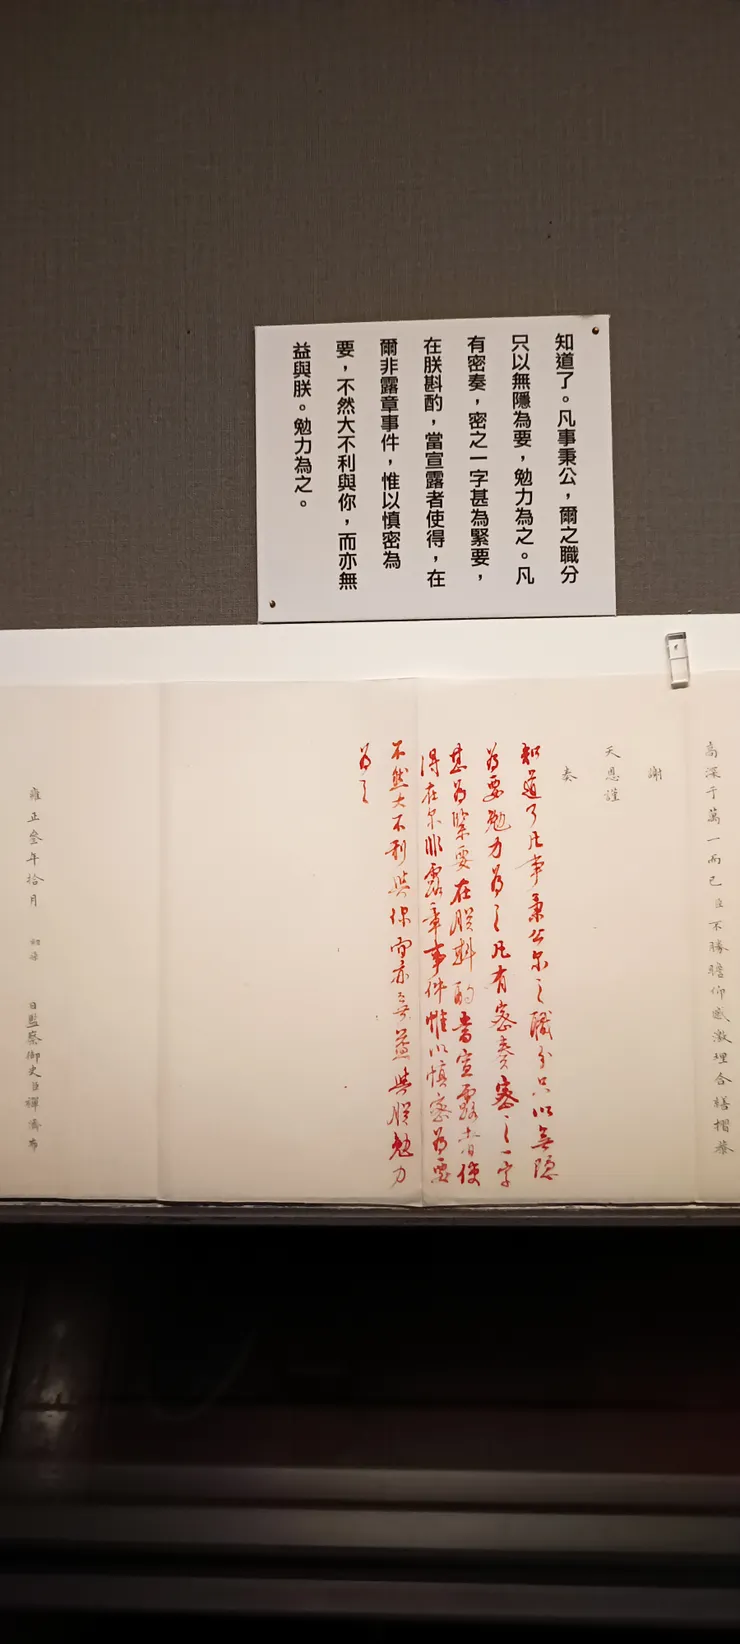 知道了。凡事秉公，爾之職分
只以無隱為要，勉力為之。凡
有密奏，密之一字甚為緊要，
在朕斟酌，當宣露者使得，在
爾非露章事件，惟以慎密為
要，不然大不利與你，而亦無
益與朕。勉力為之。
高深于萬一而已臣不勝瞻仰感激理合繕摺恭
謝
天恩謹
奏
知道了凡事秉公尔之職分只以無隱
為要勉力為之凡有密奏密之一字
甚為緊要在朕斟酌當宣露者使
得在尔非露章事件惟以慎密為要
不然大不利與你而亦無益與朕勉力
為之
雍正叁年拾月
日監察御史臣禪濟布